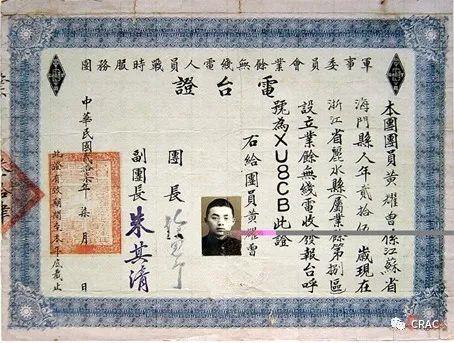 軍事委員會業餘無綫電人員戰時服務團
電台證
本團團員黃耀曾係江蘇省
海門縣人年貳拾伍歲現在
浙江省麗水縣屬業餘第捌區
設立業餘無綫電收發報台呼
號為XU8CB此證
右給團員黃耀曾
團長
副團長 朱其清
中華民國年柒月 日
此證有效期間至本年底截止
CRAC